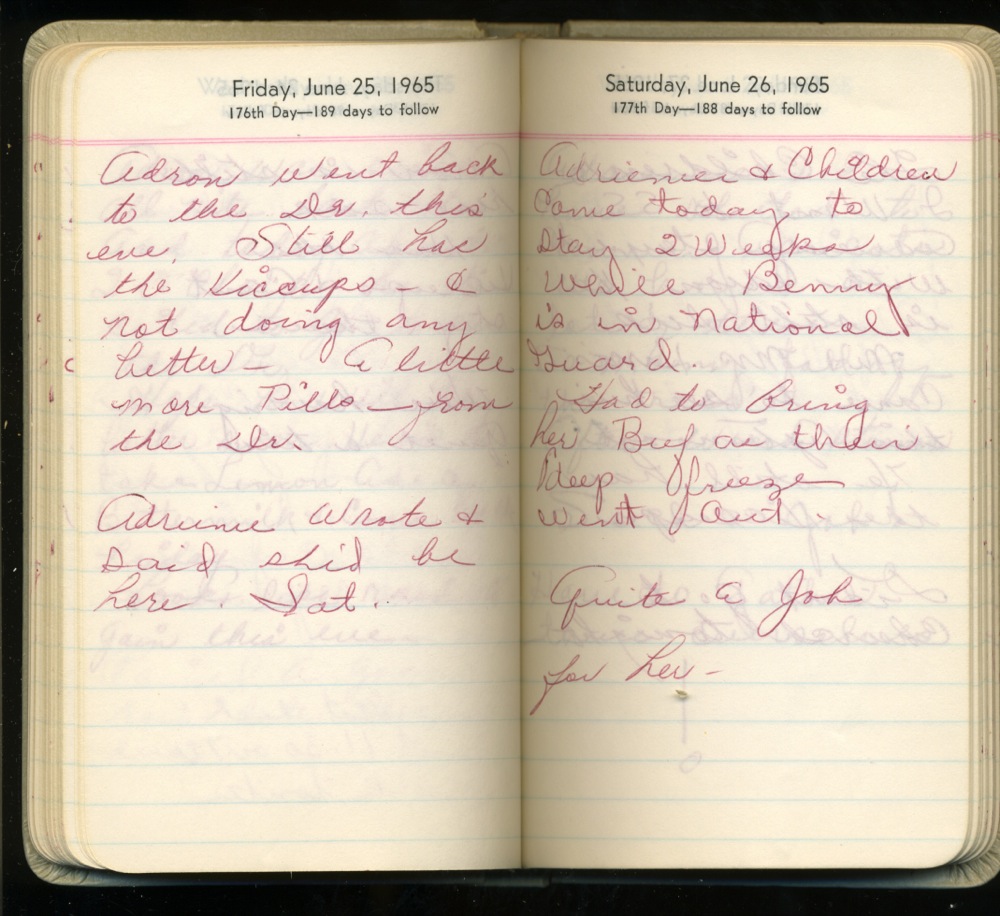 Friday, June 25, 1965
176th Day—189 days to follow
Adron went back
to the Dr. this
eve. Still has
the Hiccups - &
not doing any
better - A little
more Pills - from
the Dr.
Adrienne Wrote &
said she'd be
here. Sat.
Saturday, June 26, 1965
177th Day—188 days to follow
Adrienne & Children
Come today to
stay 2 Weeks
while Benny
is in National
Guard.
Had to bring
her Beef as their
deep freeze
went out.
Quite a Job
for her -